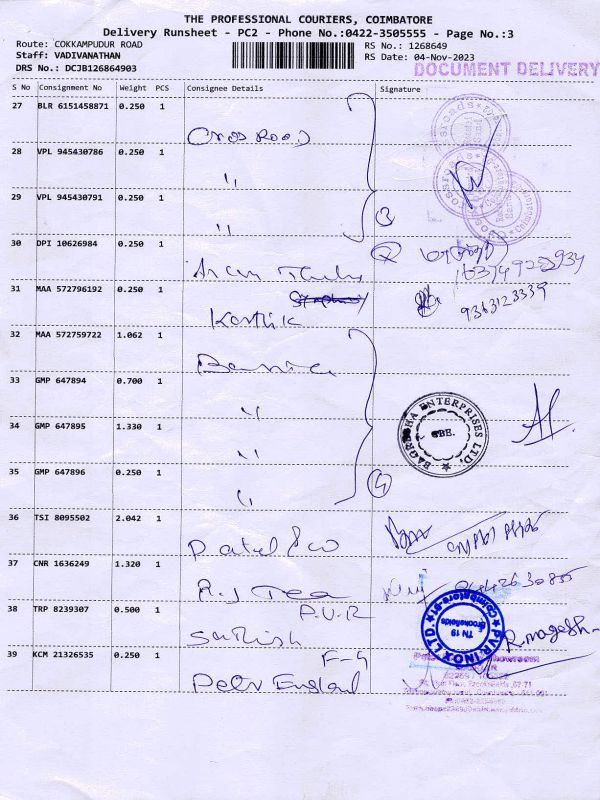 THE PROFESSIONAL COURIERS, COIMBATORE
Delivery Runsheet - PC2 - Phone No.:0422-3505555 - Page No.:3
Route: COKKAMPUDUR ROAD RS No.: 1268649
Staff: VADIVANATHAN RS Date: 04-Nov-2023
DRS No.: DCJB126864903 DOCUMENT DELIVERY
S No Consignment No Weight PCS Consignee Details Signature
27 BLR 6151458871 0.250 1
Cross Road
28 VPL 945430786 0.250 1
"
29 VPL 945430791 0.250 1
" 3
30 DPI 10626984 0.250 1
Arun
31 MAA 572796192 0.250 1
Karthik 9363123339
32 MAA 572759722 1.062 1
33 GMP 647894 0.700 1
"
BAGRECHA ENTERPRISES LTD.
34 GMP 647895 1.330 1
"
35 GMP 647896 0.250 1
" 4
36 TSI 8095502 2.042 1
Patel & co
37 CNR 1636249 1.320 1
R.J Tea
P.V.R
38 TRP 8239307 0.500 1
Sathish
PVR INOX LTD. Coimbatore TN 19 Brookefields
R. magesh
39 KCM 21326535 0.250 1
F-4
Peter England